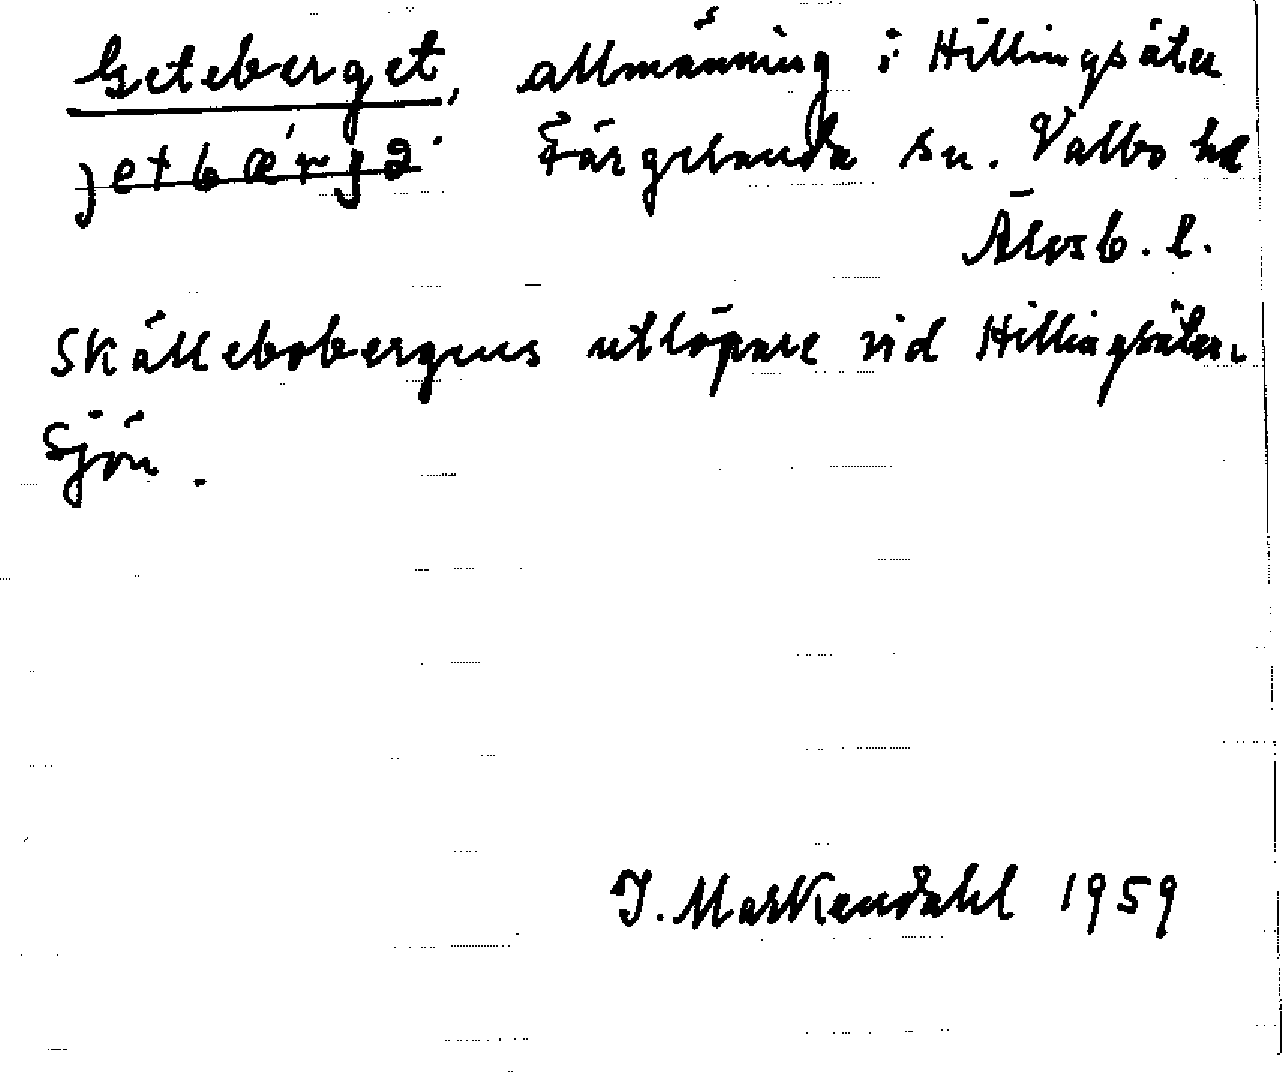 Geteberget, allmänning i Hillingsäter
jetbærjə. Färgelanda sn. Valbo hd
Älvsb. l.
Skällebobergens utlöpare vid Hillingsäter-
sjön.
J. Markendahl 1959